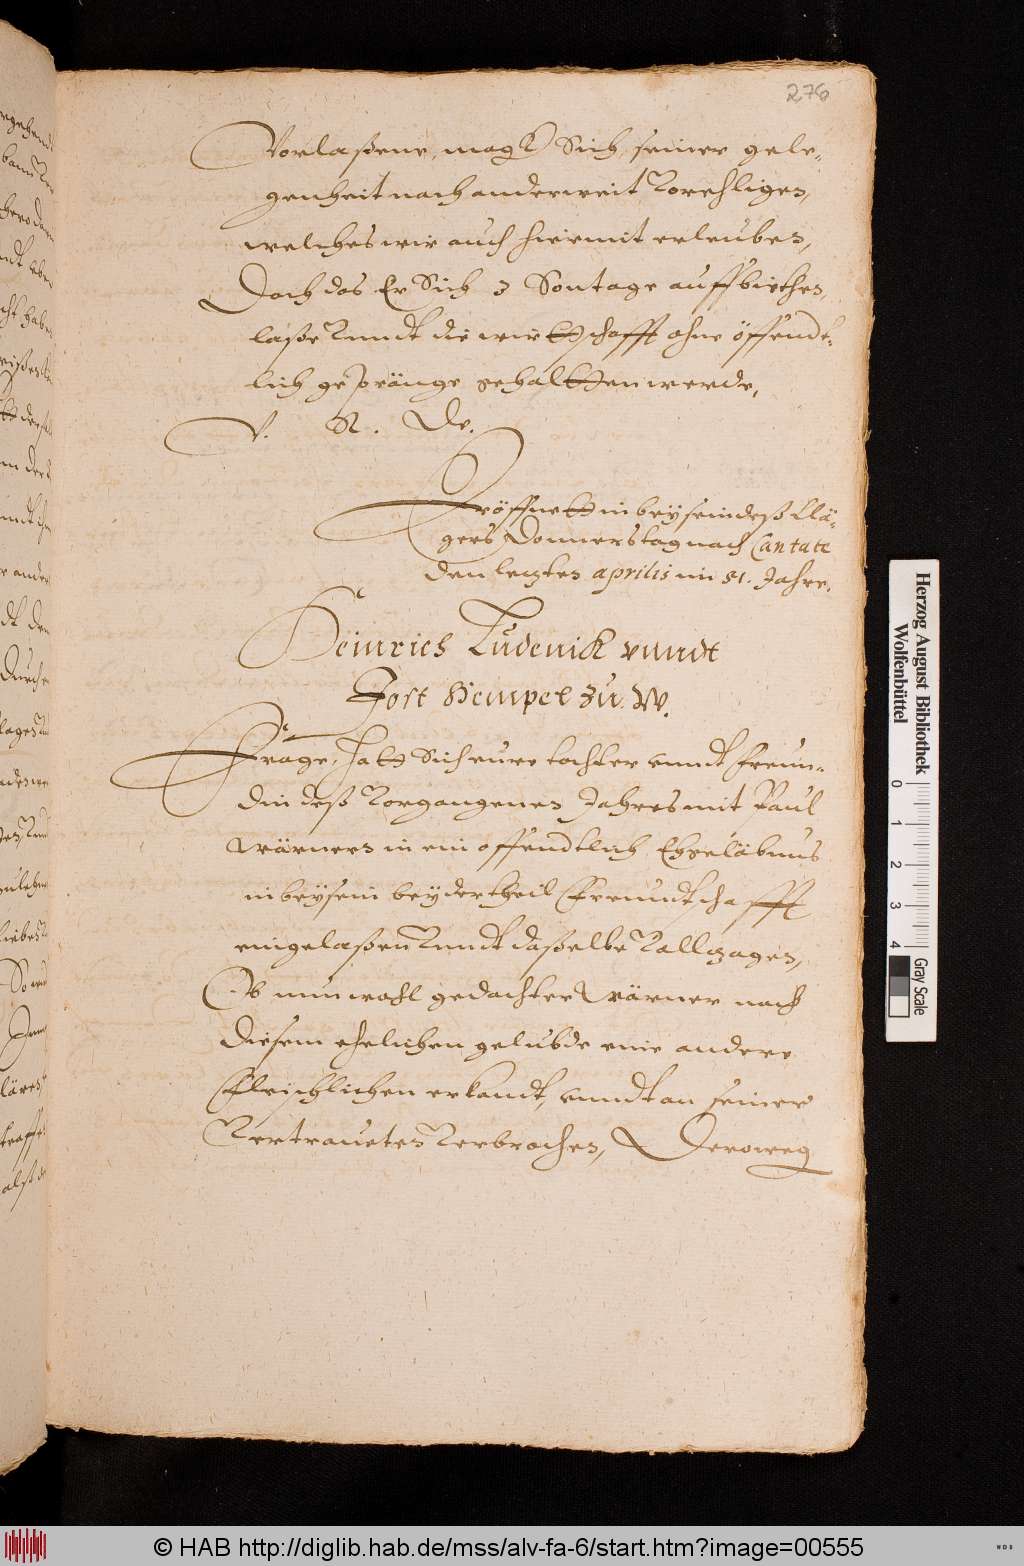 276
Vorlaßene, mag Sich seiner gele-
genheit nach anderweit Vorehligen,
welches wir auch hiermit erleuben,
Doch das Er Sich 3 Sontage auffbiethen
laße Vnndt die wirttschafft ohne öffendt-
lich gepränge gehaltten werde,
V. R. W.
Eröffnett in beysein deß Klä-
gers Donnerstag nach Cantate
den letzten aprilis im 51. Jahre.
Heinrich Ludewick vnndt
Jost Hempel zu W.
Frage, hatt Sich eure tochter vnndt freun-
din deß Vorgangenen Jahres mit Paul
Wärnern in ein offendtlich Ehgeläbnus
in beysein beydertheil Freundtschafft
eingelaßen Vnndt daßelbe Vollzagen,
Ob nun wohl gedachter Wärner nach
diesem ehelichen gelubde eine andere
Fleischlichen erkandt, vnndt an seiner
Vertraueten Verbrochen, Deroweg
Herzog August Bibliothek
Wolfenbüttel
0 1 2 3 4
Gray Scale
© HAB http://diglib.hab.de/mss/alv-fa-6/start.htm?image=00555